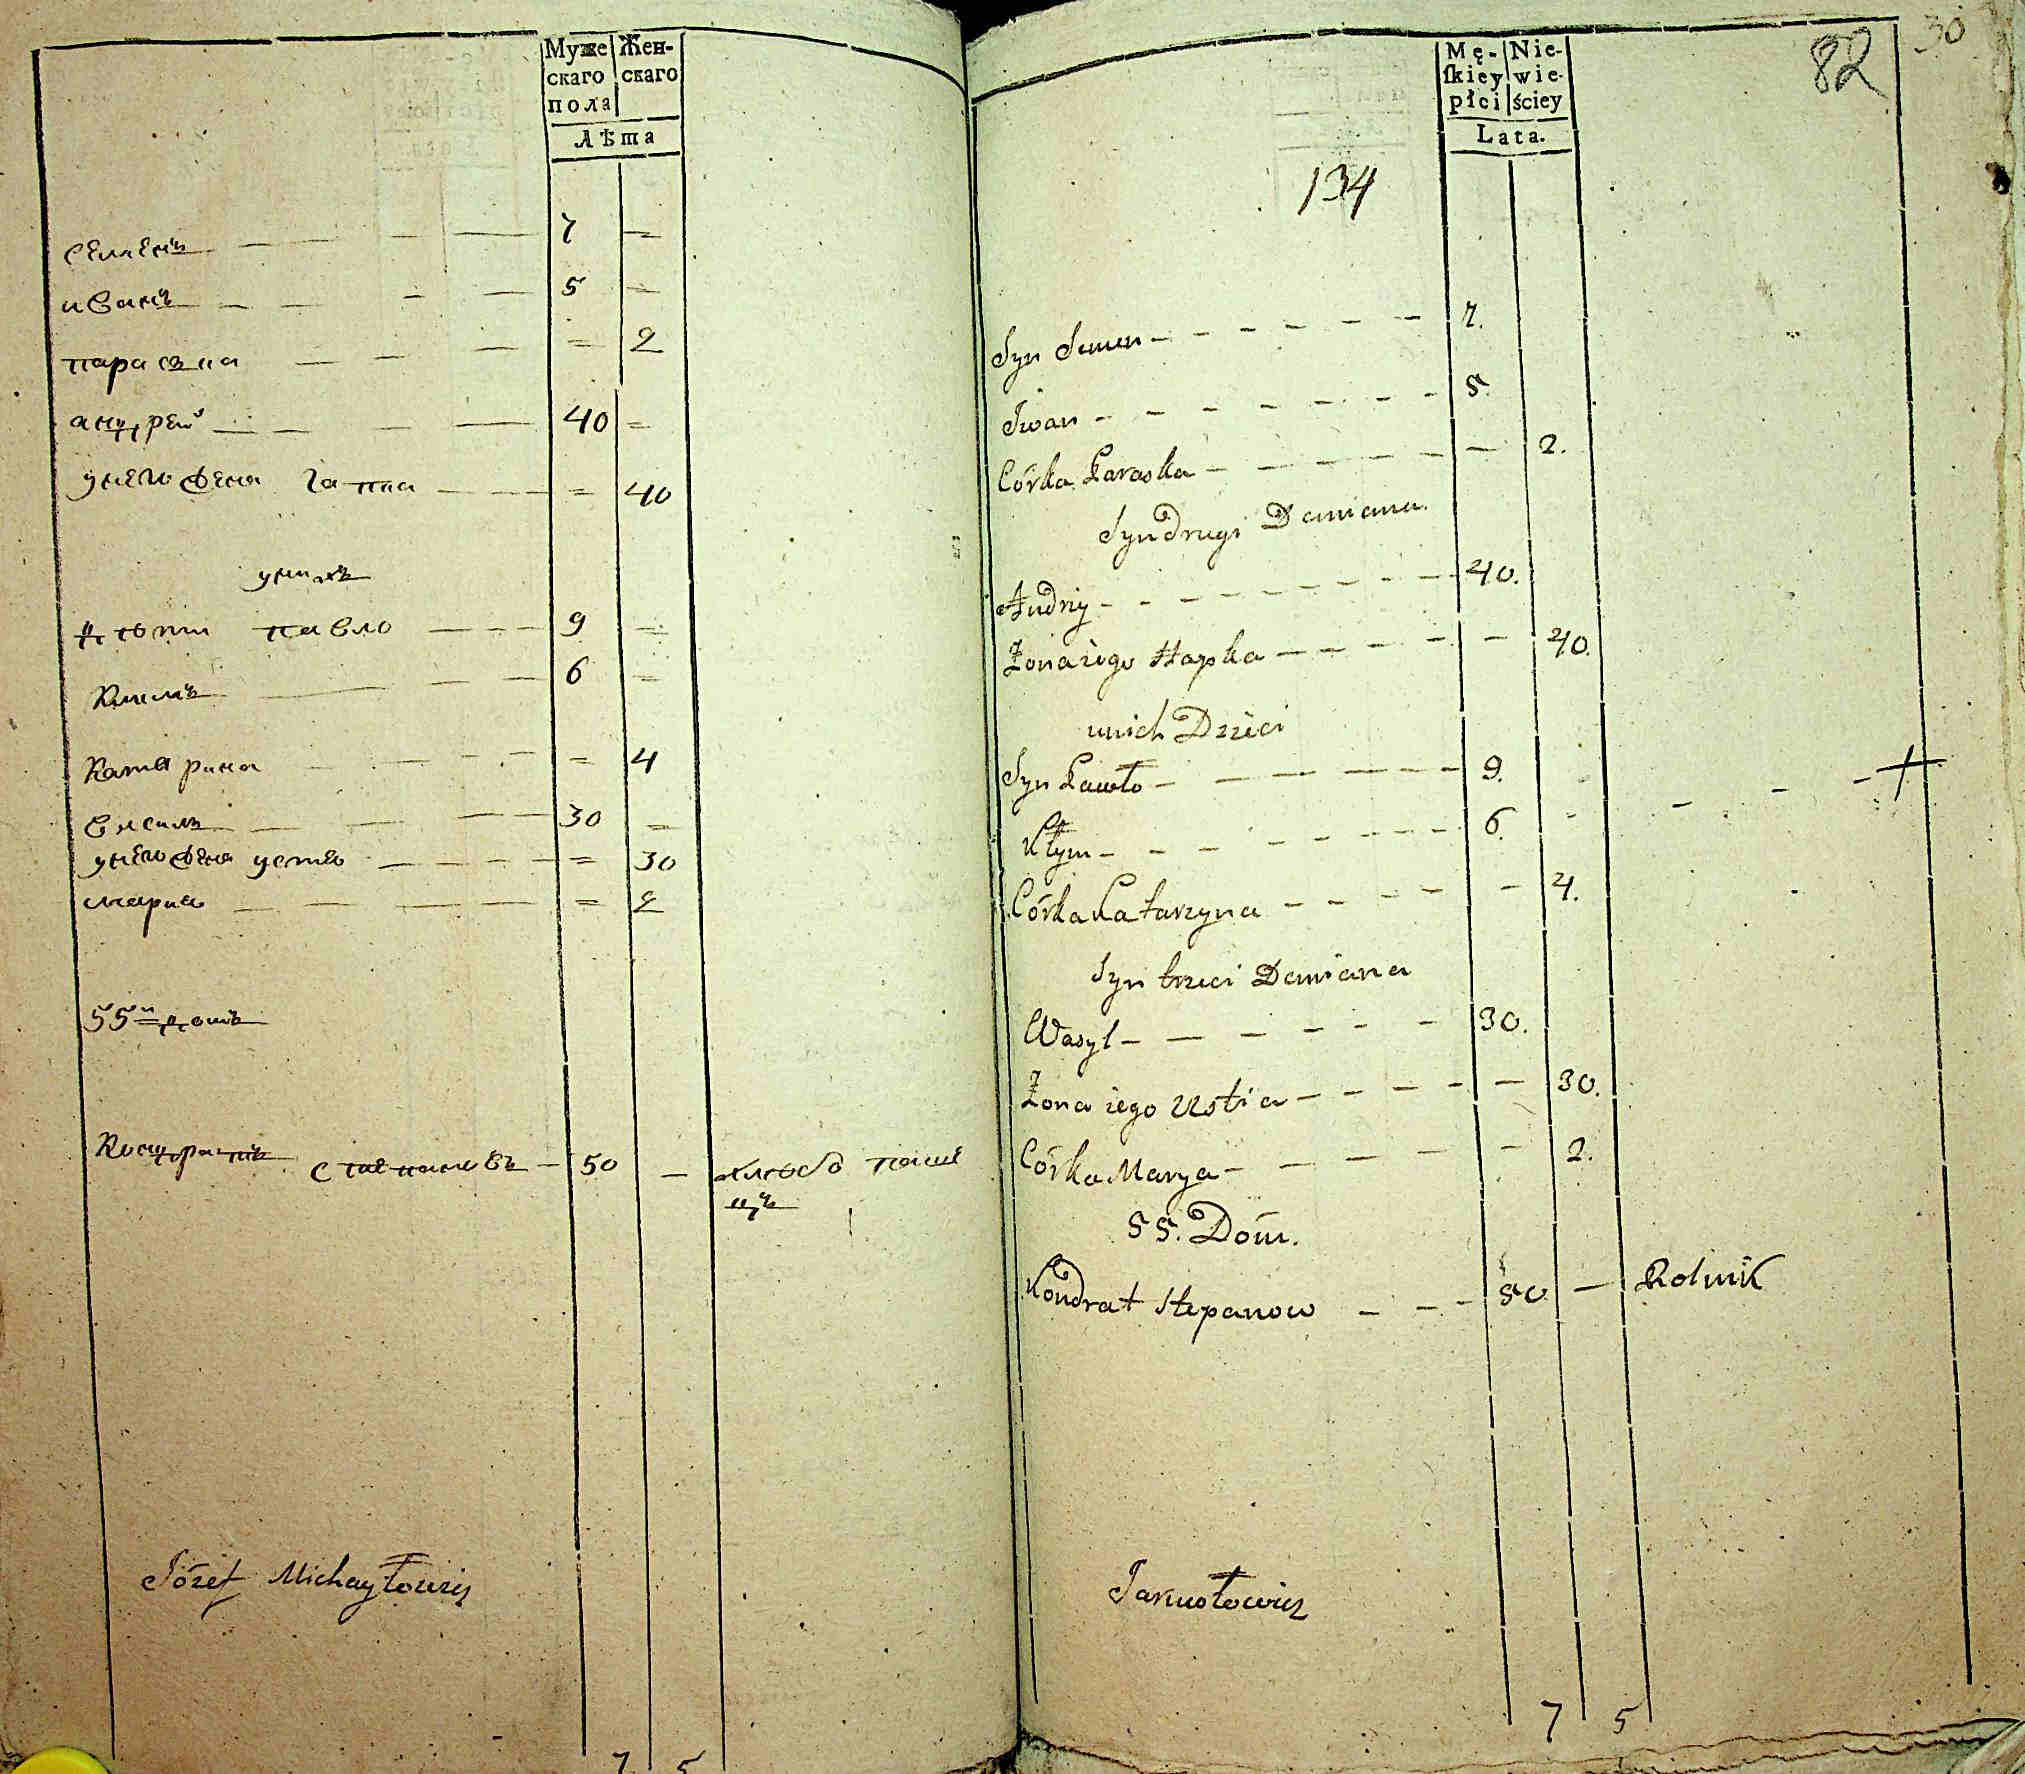 Муже Жен-
скаго скаго
пола
Лѣта
Семенъ 7 =
иванъ 5 =
параска = 2
андрей 40 =
унего жена гапка = 40
унихъ
дѣти павло 9 =
Климъ 6 =
Катерина = 4
василь 30 =
унего жена устя = 30
мария = 2
55й домъ
Кондратъ степановъ 50 — хлѣбо паше
цъ
Józef Michayłowicz
7 5
30
82
Mę- Nie-
ſkiey wie-
płci ściey
Lata.
134
Syn Semen 7.
Iwan 5.
Córka Paraska — 2.
Syn drugi Demiana.
Andriy 40.
Żona iego Hapka — 40.
unich Dzieci
Syn Pawło 9.
Kłym 6. -
Córka Katarzyna — 4.
Syn trzeci Demiana
Wasyl 30.
Żona iego Ustia — 30.
Córka Marya — 2.
55. Dóm.
Kondrat Stepanow 50 — Rolnik
7 5